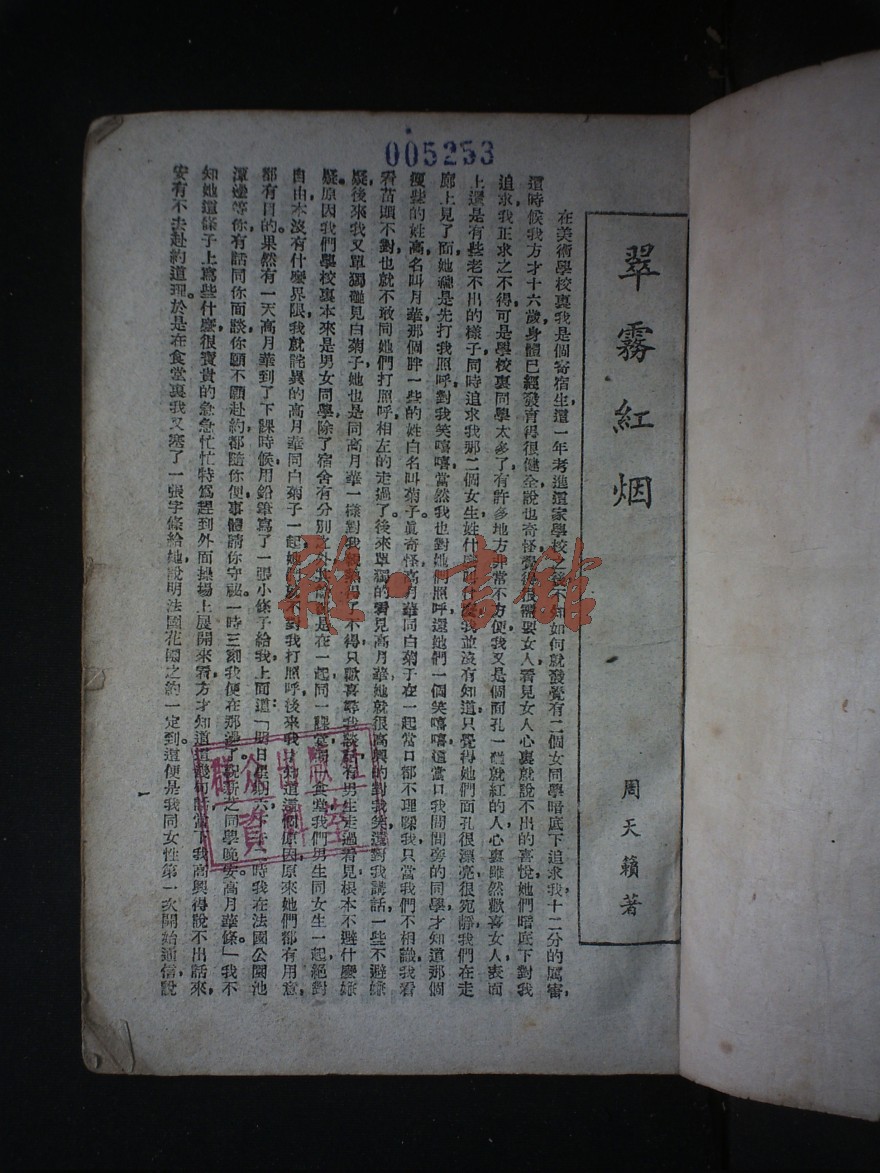 005253
翠霧紅烟
周天籟著
在美術學校裏我是個寄宿生，這一年考進這家學校之後不知如何就發覺有二個女同學暗底下追求我，我十二分的厲害，
這時候我方才十六歲，身體已經發育得很健全，說也奇怪，覺得很需要女人，看見女人心裏就說不出的喜悅，她們暗底下對我
追求，我正求之不得，可是學校裏同學太多了，有許多地方非常不方便，我又是個面孔一碰就紅的人，心裏雖然歡喜女人，表面
上還是有些老不出的樣子，同時追求我那二個女生姓什麼叫什麼我並沒有知道，只覺得她們面孔很漂亮，很宛靜，我們在走
廊上見了面，她總是先打我照呼，對我笑嘻嘻，當然我也對她們照呼，還她們一個笑嘻嘻，這當口我問間旁的同學，才知道那個
瘦些的姓高名叫月華，那個胖一些的姓白名叫菊子。眞奇怪，高月華同白菊子在一起當口都不理睬我，只當我們不相識，我看
看苗頭不對，也就不敢同她們打照呼，相左的走過了。後來單獨的看見高月華，她就很高興的對我笑，還對我講話，一些不避嫌
疑，後來我又單獨碰見白菊子，她也是同高月華一樣，對我親熱得了不得，只歡喜尋我談話，有男生走過看見，根本不避什麼嫌
疑。原因我們學校裏本來是男女同學，除了宿舍有分別之外，是在一起，同一課堂，同一食堂，我們男生同女生一起，絕對
自由，本沒有什麼界限，我就詫異的高月華同白菊子一起，她們就不對我打照呼，後來我才知道這個原因，原來她們都有用意，
都有目的。果然有一天高月華到了下課時候，用鉛筆寫了一張小條子給我，上面道：「明日星期六下午一時我在法國公園池
潭邊等你，有話同你面談，你願不願赴約都隨你便，事體請你守祕，一時三刻我便在那邊了。祝新之同學晚安。高月華條。」我不
知她這條子上寫些什麼，很寶貴的急急忙忙特爲趕到外面操場上展開來看，方才知道這幾句話，當下我高興得說不出話來，
安有不去赴約道理。於是在食堂裏我又塞了一張字條給她，說明法國花園之約一定到。這便是我同女性第一次開始通信，說
一
群众出版社
資料室
雅·書館